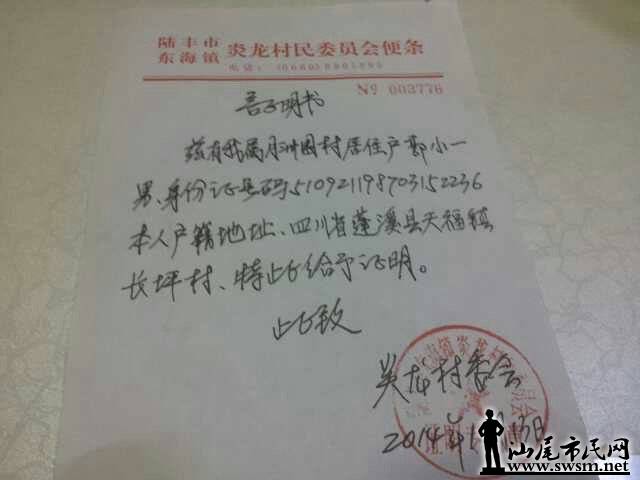 陆丰市
东海镇 炎龙村民委员会便条
电话：(0660)8905895
No 003776
证明书
兹有我属月洲园村居住户郭小一
男、身份证号码510921198703152236
本人户籍地址、四川省蓬溪县天福镇
长坪村、特此给予证明。
此致
炎龙村委会
2014年1月13日
汕尾市民网
www.swsm.net